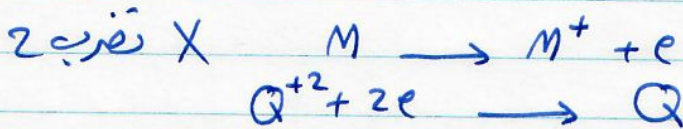 تضرب 2 X M → M⁺ + e
Q⁺² + 2e → Q